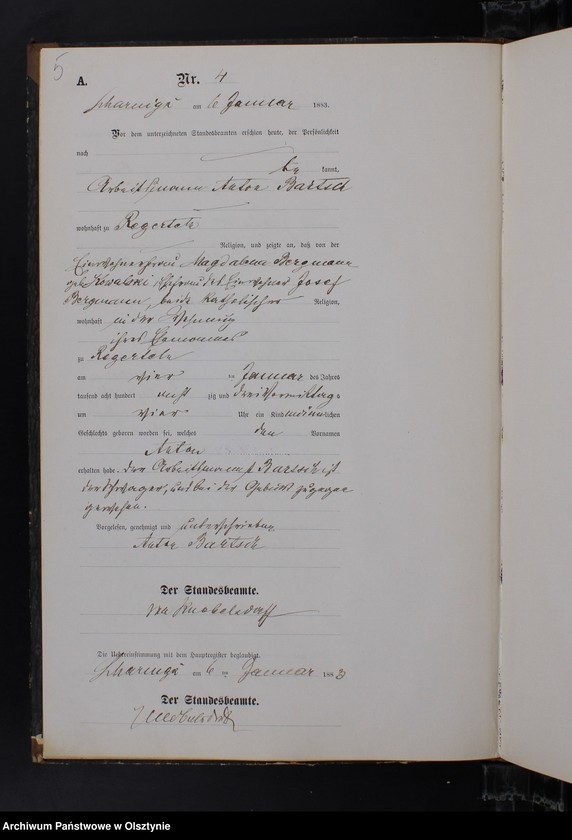 5
A. Nr. 4
am 6 Januar 1883.
Vor dem unterzeichneten Standesbeamten erschien heute, der Persönlichkeit
nach
kannt,
Arbeitsmann Anton Bartsch
wohnhaft zu Regerteln
Religion, und zeigte an, daß von der
Einwohnerfrau Magdalena Bergmann
geb. Kowalski, Ehefrau des Einwohner Josef
Bergmann, beide katholischer Religion,
wohnhaft in der Wohnung
ihres Ehemannes
zu Regerteln
am vier ten Januar des Jahres
tausend acht hundert acht zig und drei Vormittags
um vier Uhr ein Kind männlichen
Geschlechts geboren worden sei, welches den Vornamen
Anton
erhalten habe. Der Arbeitsmann Bartsch ist
der Schwager, und bei der Geburt zugegen
gewesen.
Vorgelesen, genehmigt und unterschrieben
Anton Bartsch
Der Standesbeamte.
von Knobelsdorff
Die Uebereinstimmung mit dem Hauptregister beglaubigt.
am 6 ten Januar 1883
Der Standesbeamte.
Archiwum Państwowe w Olsztynie